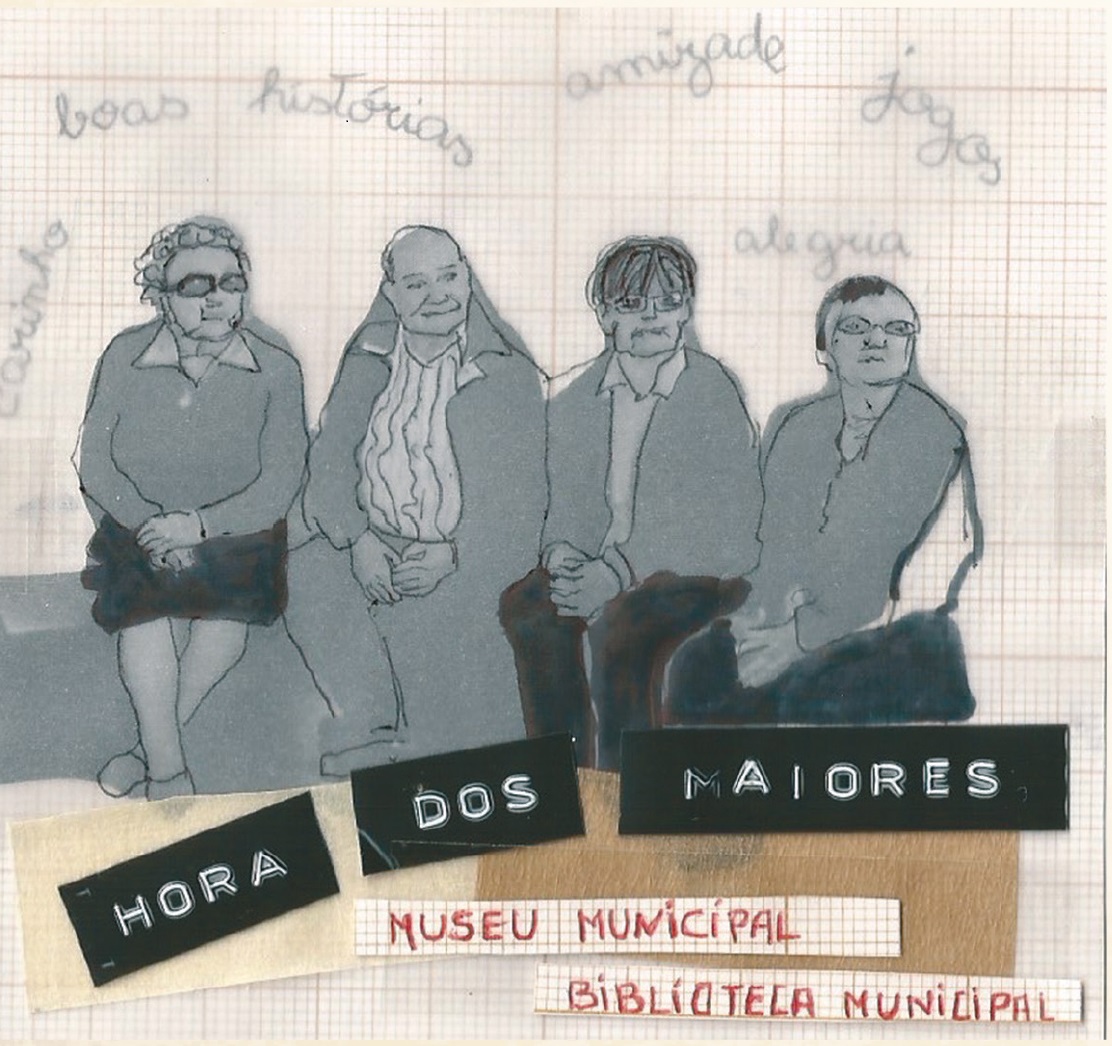 boas histórias amizade jogos
carinho
alegria
HORA DOS MAIORES
MUSEU MUNICÍPAL
BIBLIOTECA MUNICIPAL